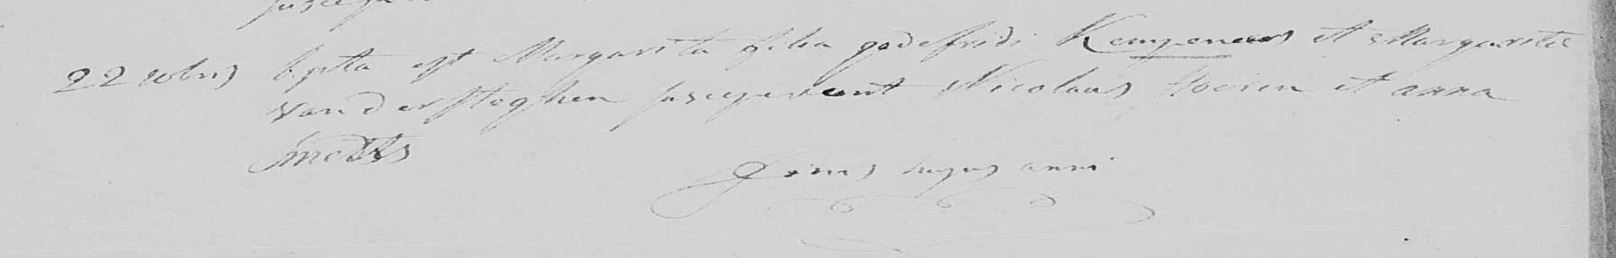 22 xobris bpta est Margarita filia godefridi Kempeneers et Margaritae
vandersteghen susceperunt Nicolaus et anna
Smetts
Finis hujus anni